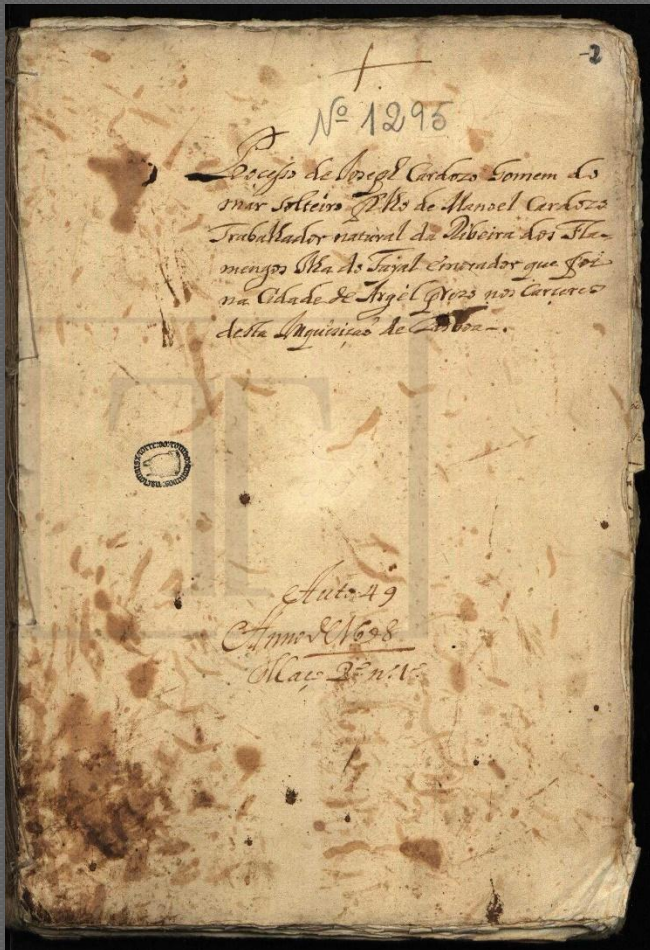 -2
Nº 1295
Processo de Joseph Cardozo homem do
mar solteiro filho de Manoel Cardozo
Trabalhador natural da Ribeira dos Fla-
mengos Ilha do Fayal e morador que foi
na Cidade de Argel prezo nos Carceres
desta Inquisição de Lisboa -.
Auto 49
Anno de
Maço